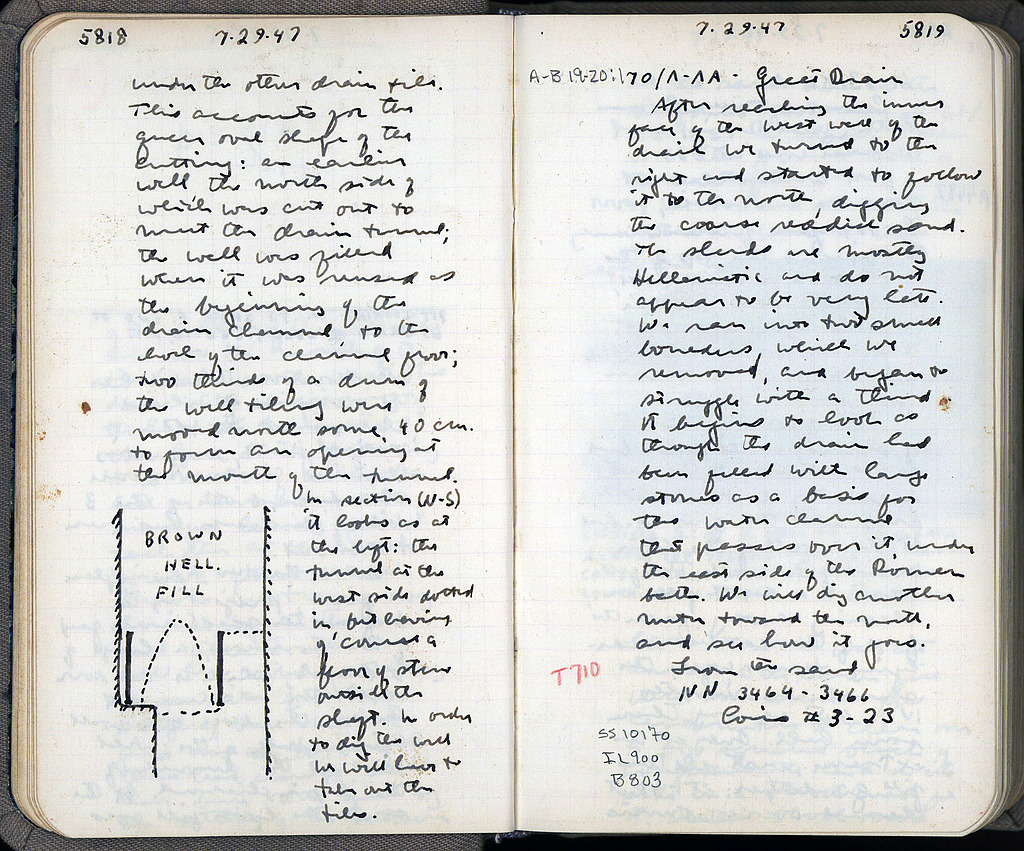 5818 7.29.47
under the other drain tile.
This accounts for the
queer oval shape of the
cutting: an earlier
well the north side of
which was cut out to
meet the drain tunnel;
the well was filled
when it was reused as
the beginning of the
drain channel to the
level of the channel floor;
two thirds of a drum of
the well tiling were
moved north some 40 cm.
to form an opening at
the mouth of the tunnel.
In section (N-S)
it looks as at
the left: the
tunnel at the
west side dotted
in but having
of course a
floor of stone
outside the
shaft. In order
to dig the well
we will have to
take out the
tiles.
BROWN
HELL.
FILL
7.29.47 5819
A-B 19-20:170/Λ-ΛΑ - Great Drain
After reaching the inner
face of the west wall of the
drain we turned to the
right and started to follow
it to the north, digging
the coarse reddish sand.
The sherds are mostly
Hellenistic and do not
appear to be very late.
We ran into two small
boulders, which we
removed, and began to
struggle with a third
It begins to look as
though the drain had
been filled with large
stones as a basis for
the water channel
that passes over it, under
the east side of the Roman
bath. We will dig another
meter toward the north,
and see how it goes.
From the sand
NN 3464-3466
Coins # 3-23
T710
SS 10170
IL 900
B 803